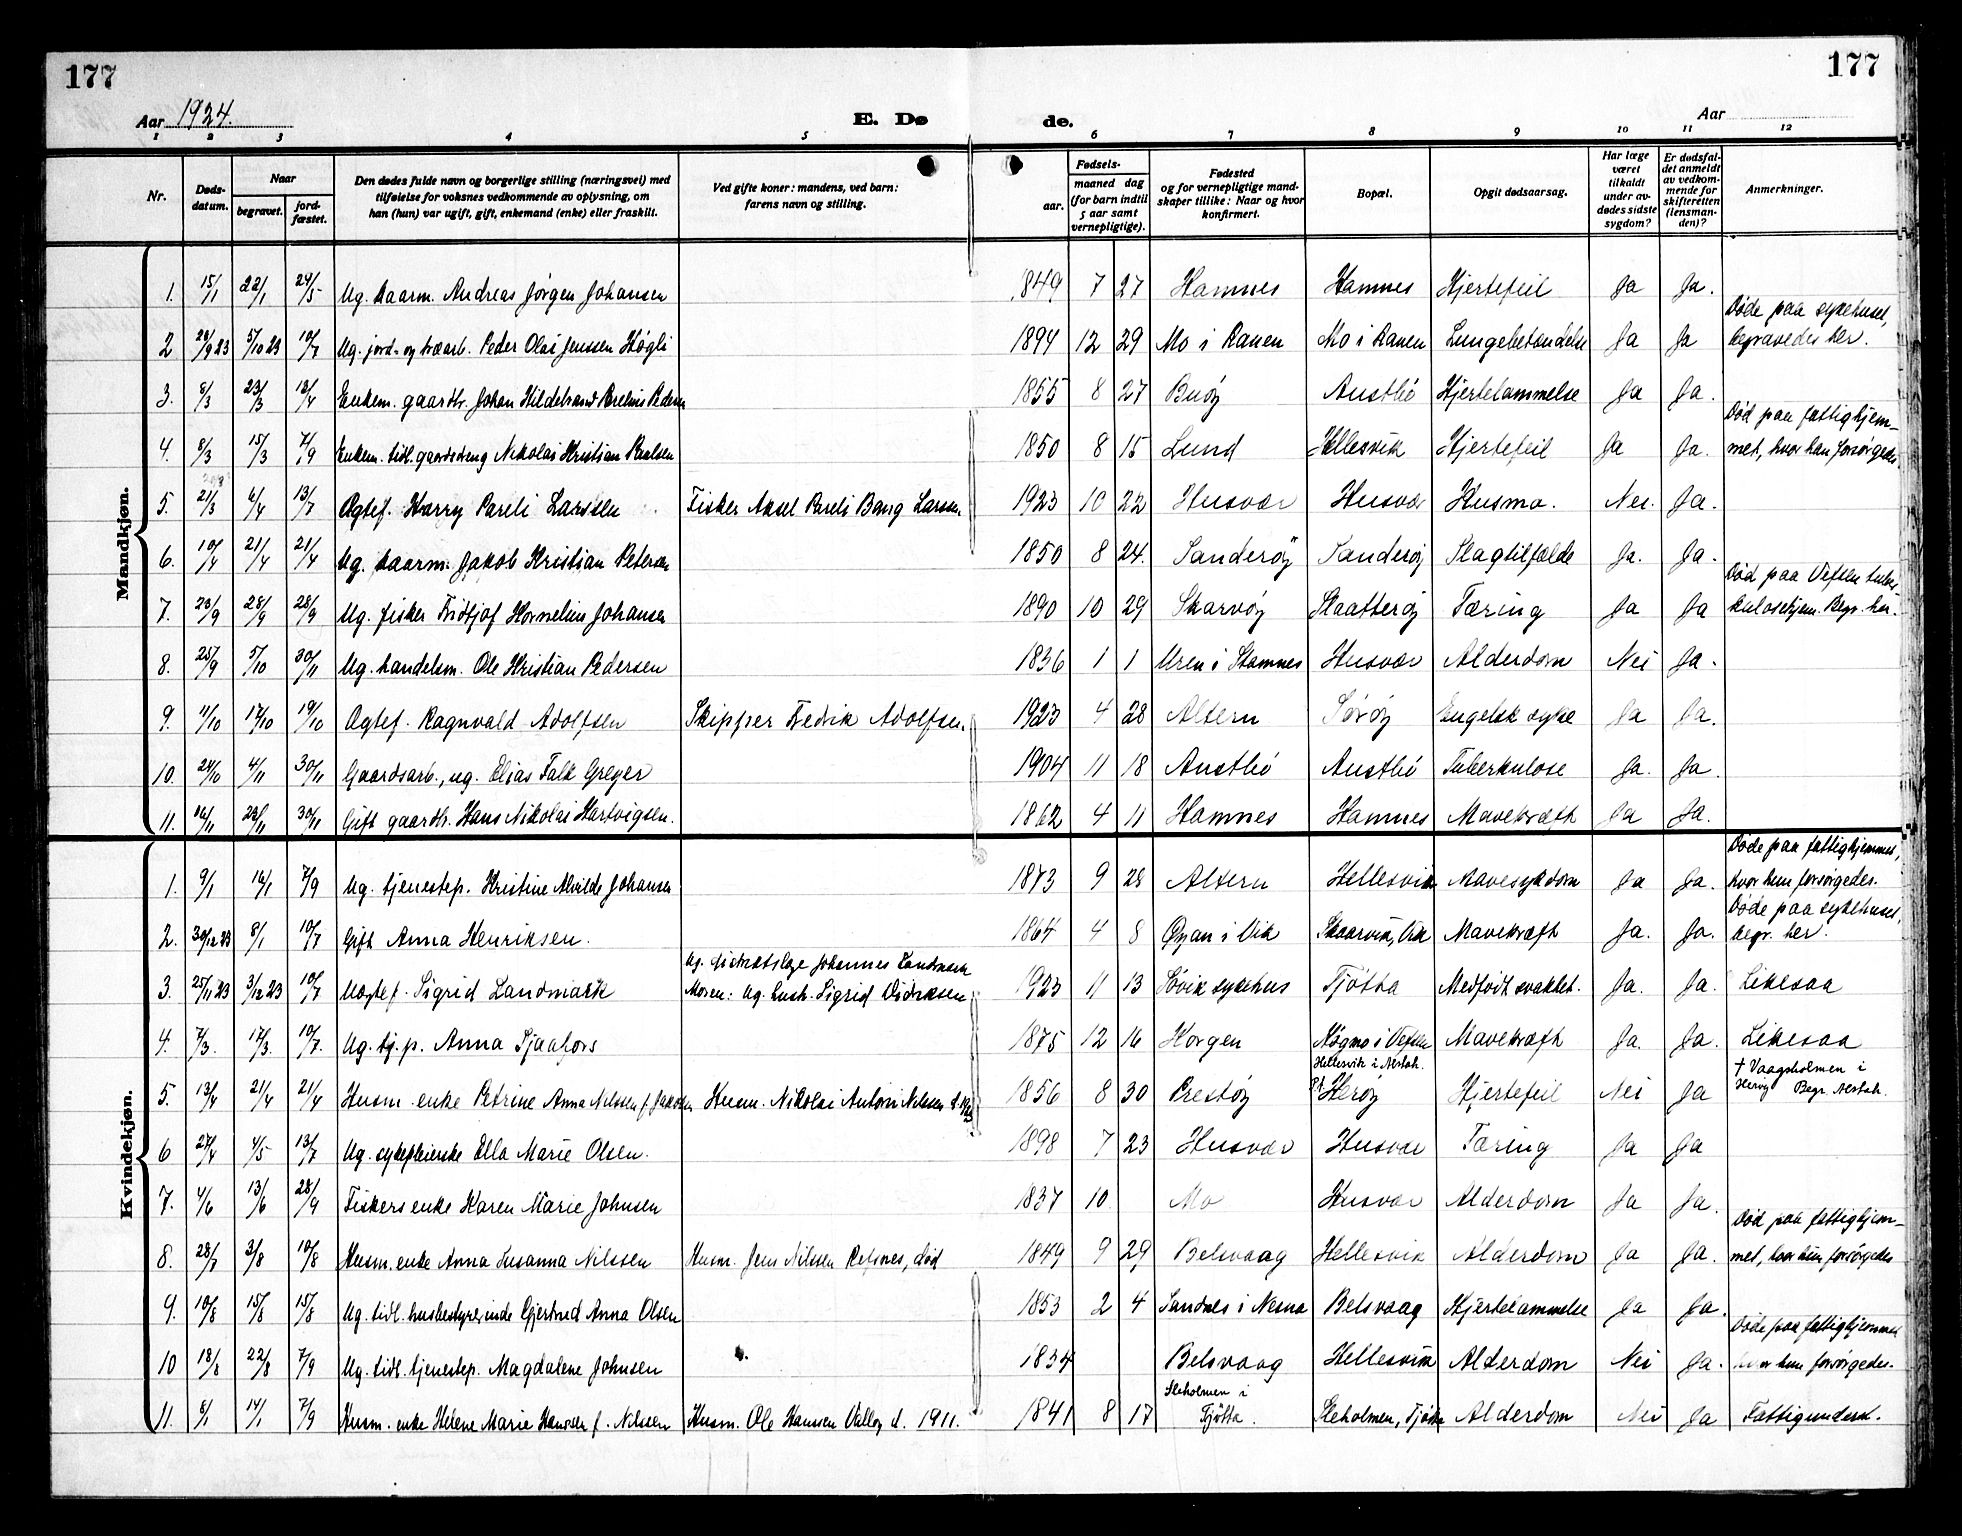 177
177
Aar 1924.
E. Dø
de.
Aar
1 2 3 4 5 6 7 8 9 10 11 12
Nr.
Døds-
datum.
Naar
begravet.
jord-
fæstet.
Den dødes fulde navn og borgerlige stilling (næringsvei) med
tilføielse for voksnes vedkommende av oplysning, om
han (hun) var ugift, gift, enkemand (enke) eller fraskilt.
Ved gifte koner: mandens, ved barn:
farens navn og stilling.
Fødsels-
aar.
maaned dag
(for barn indtil
5 aar samt
vernepligtige).
Fødested
og for vernepligtige mand-
skaper tillike: Naar og hvor
konfirmert.
Bopæl.
Opgit dødsaarsag.
Har læge
været
tilkaldt
under av-
dødes sidste
sygdom?
Er dødsfal-
det anmeldt
av vedkom-
mende for
skifteretten
(lensman-
den)?
Anmerkninger.
Mandkjøn.
1. 15/1 22/1 24/5 Ug. kaarm. Andreas Jørgen Johansen 1849 7 27 Hamnes Hamnes Hjertefeil Ja Ja.
Døde paa sykehuset,
2 26/9 23 5/10 23 10/7 Ug. jord- og træarb. Peder Olai Jenssen Høgli 1894 12 29 Mo i Ranen Mo i Ranen Lungebetændelse Ja Ja begravedes her.
3. 8/3 23/3 13/4 Enkem. gaardbr. Johan Hildebrand Parelius Pedersen 1855 8 27 Buøy Austbø Hjertelammelse Ja Ja.
Død paa fattighjem-
4. 8/3 15/3 7/9 Enkem. tidl. gaardsdreng Nikolai Kristian Paulsen 1850 8 15 Lund Hellesvik Hjertefeil Ja Ja. met, hvor han forsørgedes
5. 21/3 6/4 13/7 Ægtef. Harry Pareli Larssen Fisker Aksel Pareli Bang Larssen 1923 10 22 Husvær Husvær Kusma. Nei. Ja.
6. 10/4 21/4 21/4 Ug. kaarm. Jakob Kristian Petersen 1850 8 24. Sanderøy Sanderøy Slagtilfælde Ja. Ja.
Død paa Vefsen tuber
7. 20/9 28/9 28/9 Ug. fisker Fridtjof Kornelius Johansen 1890 10 29 Skarvøy Staatterøy Tæring Ja Ja kulosehjem. Begr. her.
8. 25/9 5/10 30/11 Ug. handelsm. Ole Kristian Pedersen 1836 1 1 Uren i Stamnes Husvær Alderdom Nei Ja.
9. 11/10 17/10 19/10 Ægtef. Ragnvald Adolfsen Skipper Fredrik Adolfsen. 1923 4 28 Altern Sørøy Engelsk syke Ja Ja.
10. 24/10 4/11 30/11 Gaardsarb., ug. Elias Falk Greger 1904 11 18 Austbø Austbø Tuberkulose Ja. Ja.
11. 16/11 23/11 30/11 Gift gaardbr. Hans Nikolai Hartvigsen. 1862 4 11 Hamnes Hamnes Mavekræft Ja Ja.
Kvindekjøn.
Døde paa fattighjemmet,
1. 9/1 16/1 7/9 Ug. tjenestep. Kristine Alvilde Johansen 1873 9 28 Altern Hellesvik Mavesykdom Ja Ja. hvor hun forsørgedes.
Døde paa sykehuset,
2. 30/12 23 8/1 10/7 Gift Anna Henriksen. 1864 4 8 Øyan i Vik Skaarvik, Vik Mavekræft Ja. Ja. begr. her.
Ug. distriktslæge Johannes Landmark
3. 25/11 23 3/12 23 10/7 Uægtef. Sigrid Landmark Moren: Ug. hush. Sigrid Didriksen 1923 11 13 Søvik sykehus Tjøtta Medfødt svakhet. Ja. Ja. Likesaa
4. 7/3. 17/3. 10/7. Ug. tj.p. Anna Sjaafors 1875 12 16 Horgen Høgmo i Vefsen Mavekræft Ja. Ja. Likesaa
Hellesvik i Alstah. † Vaagsholmen i
5. 13/4 21/4 21/4 Husm. enke Petrine Anna Nilssen f. Jakobsen Husm. Nikolai Antoni Nilssen 1856 8 30 Prestøy P.t. Herøy Hjertefeil Nei Ja Herøy Begr. Alstah.
6 27/4 4/5 13/7 Ug. sykepleierske Ella Marie Olsen. 1898 7 23 Husvær Husvær Tæring Ja Ja
7. 4/6 13/6 28/9 Fiskers enke Karen Marie Johnsen 1837 10 Mo Husvær Alderdom Ja Ja.
Død paa fattighjem-
8. 28/7 3/8 10/8 Husm. enke Anna Susanna Nilssen Husm. Jens Nilssen Refsnes, død 1849 9 29 Belsvaag Hellesvik Alderdom Ja Ja. met, hvor hun forsørgedes
9. 10/8 15/8 15/8 Ug. tidl. husbestyrerinde Gjertrud Anna Olsen 1853 2 4 Sandnes i Nesna Belsvaag Hjertelammelse Ja Ja.
Døde paa fattighjemmet
10 18/8 22/8 7/9 Ug. tidl. tjenestep. Magdalene Johnsen 1834 Belsvaag Hellesvik Alderdom Nei Ja. hvor hun forsørgedes.
Sleholmen i
11. 8/1 14/1 7/9 Husm. enke Helene Marie Hanssen f. Nilssen Husm. Ole Hanssen Valløy d. 1911. 1841 8 17 Tjøtta. Sleholmen, Tjøtta Alderdom Nei Ja Fattigunderst.